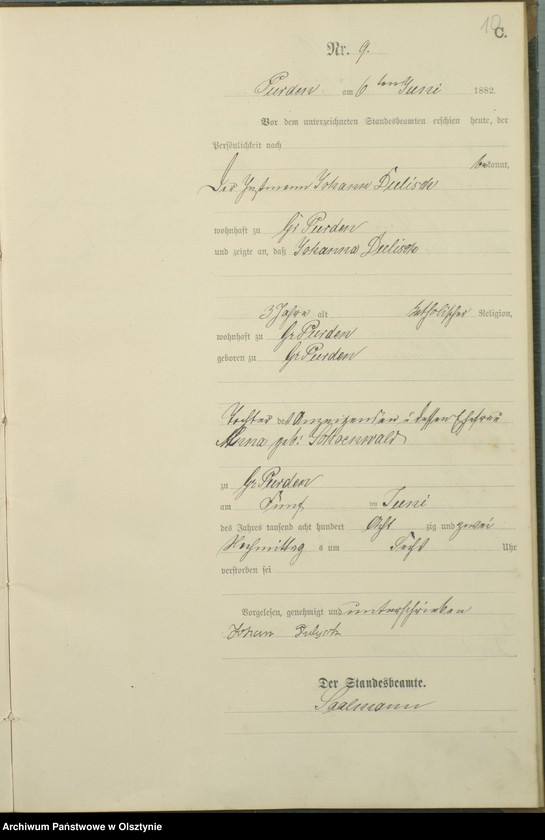 12
C.
Nr. 9.
Purden am 6ten Juni 1882.
Vor dem unterzeichneten Standesbeamten erschien heute, der
Persönlichkeit nach
bekannt,
Der Instmann Johann
wohnhaft zu Gr Purden
und zeigte an, daß Johanna
3 Jahre alt katholischer Religion,
wohnhaft zu Gr Purden
geboren zu Gr Purden
Tochter des Anzeigenden u dessen Ehefrau
Anna geb: Schoenwald
zu Gr Purden
am Fünf ten Juni
des Jahres tausend acht hundert Acht zig und zwei
Nachmittag s um Uhr
verstorben sei
Vorgelesen, genehmigt und unterschrieben
Johan
Der Standesbeamte.
Saalmann
Archiwum Państwowe w Olsztynie